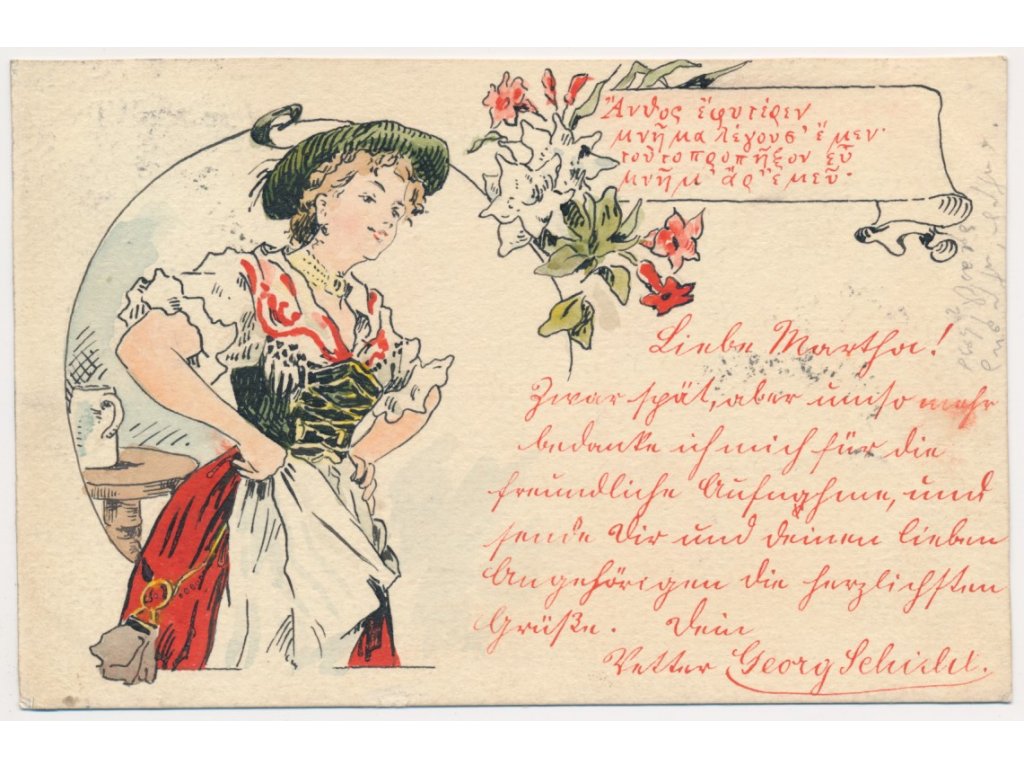 Ἄνθος ἐφυτέρεν
μνῆμα λέγουσ' ἔμεν·
τοῦτο προπῆξον εὖ
μνῆμ' ἄρ' ἐμεῦ·
Liebe Martha!
Zwar spät, aber umso mehr
bedanke ich mich für die
freundliche Aufnahme, und
sende Dir und deinen lieben
Angehörigen die herzlichsten
Grüße. Dein
Vetter Georg